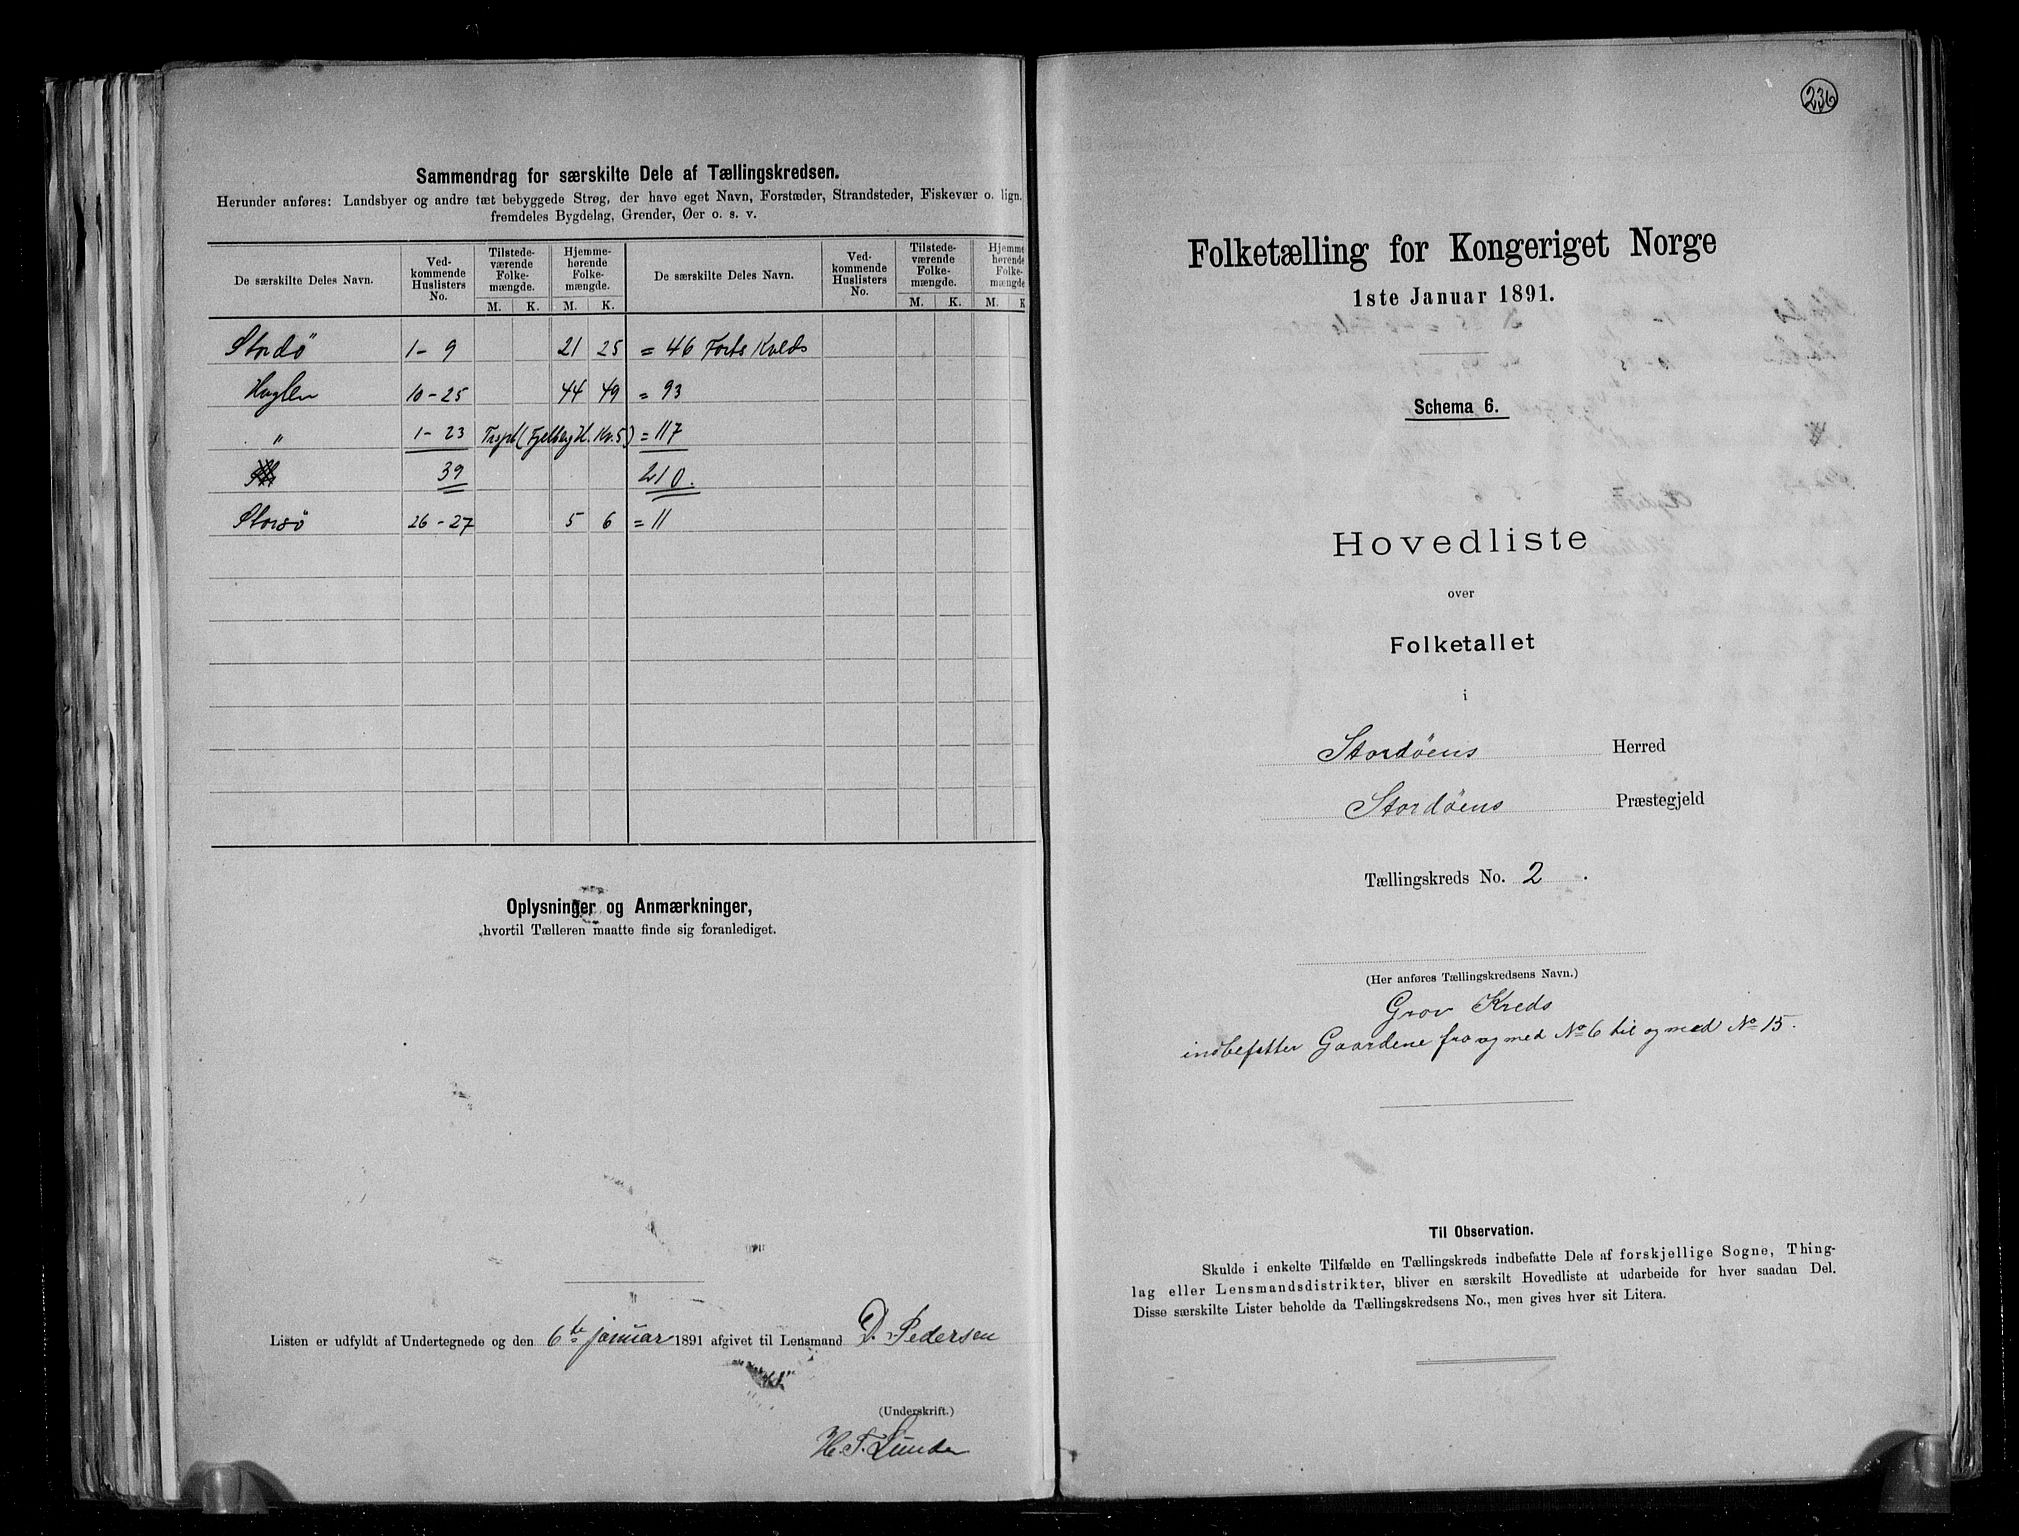 Sammendrag for særskilte Dele af Tællingskredsen.
Herunder anføres: Landsbyer og andre tæt bebyggede Strøg, der have eget Navn, Forstæder, Strandsteder, Fiskevær o. lign.
fremdeles Bygdelag, Grender, Øer o. s. v.
De særskilte Deles Navn. Ved-kommende Huslisters No. Tilstede-værende Folke-mængde. Hjemme-hørende Folke-mængde. De særskilte Deles Navn. Ved-kommende Huslisters No. Tilstede-værende Folke-mængde. Hjemme hørende Folke-mængde
M. K. M. K. M. K. M. K
Stordö 1-9 21 25 = 46 Forts Kvlds
Huglen 10-25 44 49 = 93
" 1-23 Trspt (Fjelberg H. Kr. 5) = 117
39 210.
Storsö 26-27 5 6 = 11
Oplysninger og Anmærkninger,
hvortil Tælleren maatte finde sig foranlediget.
Listen er udfyldt af Undertegnede og den 6te januar 1891 afgivet til Lensmand D. Pedersen
(Underskrift.)
H. T. Lunde
236
Folketælling for Kongeriget Norge
1ste Januar 1891.
Schema 6.
Hovedliste
over
Folketallet
i
Stordöens Herred
Stordöens Præstegjeld
Tællingskreds No. 2.
(Her anføres Tællingskredsens Navn.)
Grov Kreds
indbefatter Gaardene fra og med No 6 til og med No 15.
Til Observation.
Skulde i enkelte Tilfælde en Tællingskreds indbefatte Dele af forskjellige Sogne, Thing-
lag eller Lensmandsdistrikter, bliver en særskilt Hovedliste at udarbeide for hver saadan Del.
Disse særskilte Lister beholde da Tællingskredsens No., men gives hver sit Litera.